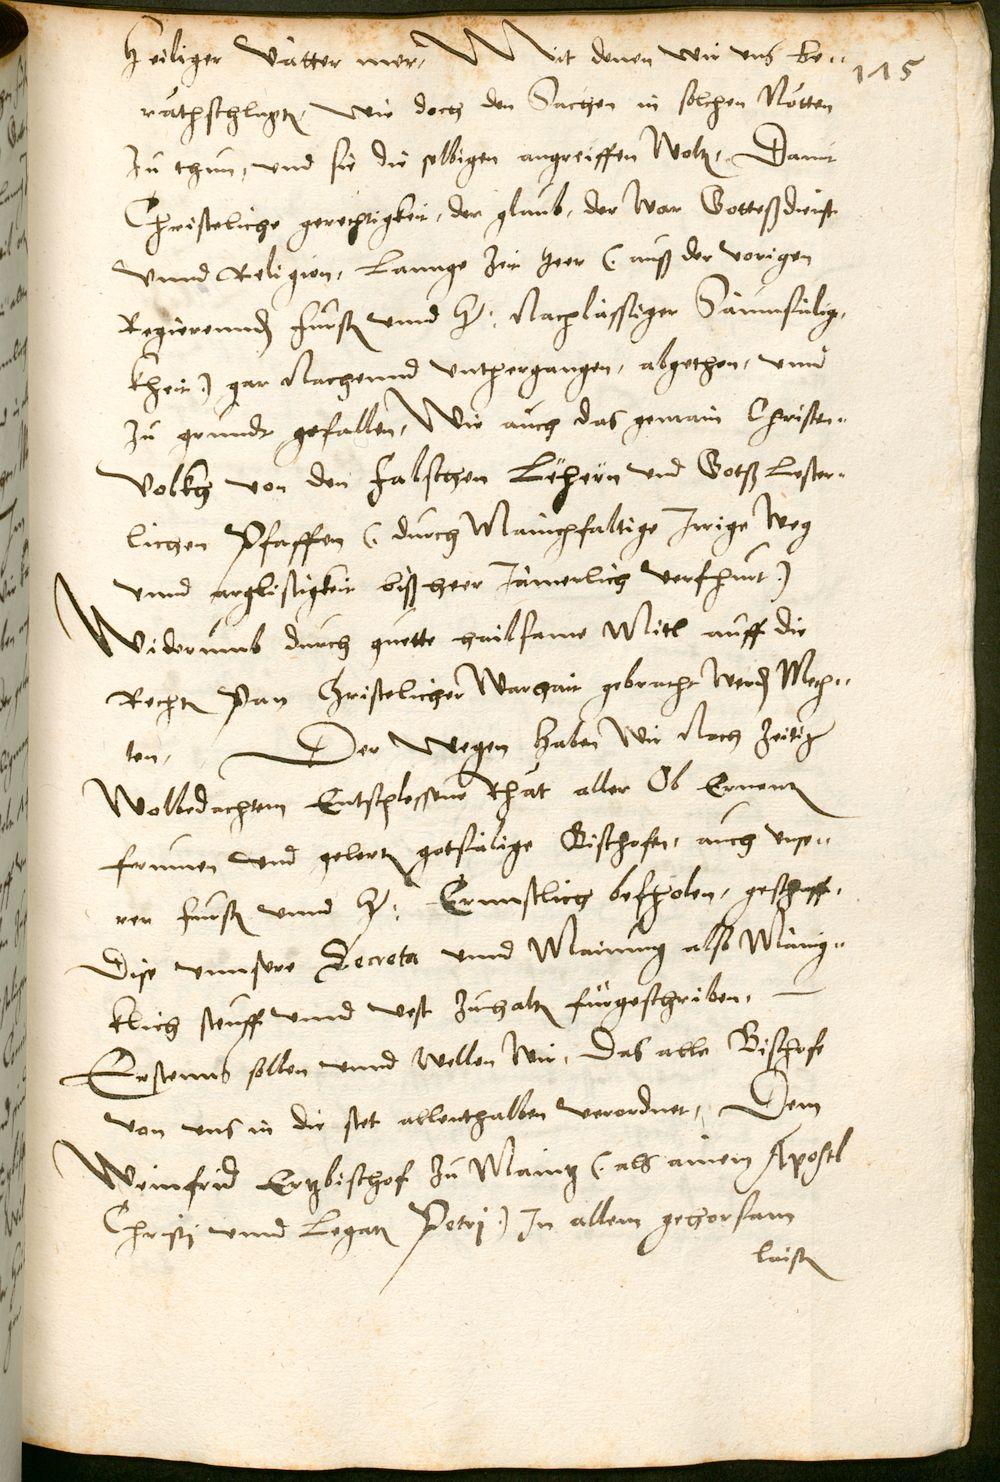 Heiliger Vätter mer, Mit denen wir uns be-- 115
rathschlagtn, wie doch den Sachen in solchen Nötten
zu thun, und sie die selbigen angreiffen Woltn, Damit
Christeliche gerechtigkeit, der glaub, der War Gotteßdienst
vnnd Religion, Lannge Zeit heer (: auß der vorigen
Regierennden fürstn vnnd H: Nachlässiger Saumsälig-
kheit :) gar Nachennd vnthergangen, abgethon, vnnd
zu grundt gefallen, Wie auch das gemain Christen--
Volckh von den falschen Lehern und Gotß Lester--
lichen Pfaffen (: durch Mainchfaltige Irrige Weg
vnnd arglistigkeit bißheer Jämerlich verfhurt :)
Widerumb durch guette hailsame Mitl auff die
Rechtn Pan Christelicher Warhait gebracht werdn Mech--
ten, Der wegen haben Wir Nach Zeitign
Wolbedachtem Entschlossene Rhat aller Ob Ernentn
frumen und gelertn gotsälige Bischofen, auch unse--
ren fürstn vnnd H: Ernnstlich befholen, geschafft,
Dise vnnsere Decreta vnnd Mainung also Mänig--
klich steuff vnnd vest zuhaltn fürgeschriben,
Erstenns sollen vnnd wellen Wir, Das alle Bischofe
von uns in die stet allenthalben verordnet, Dem
Weinfrid Ertzbischof zu Maintz (: als ainem Apostl
Christi vnnd Legatn Petri :) In allem gehorsam
laistn